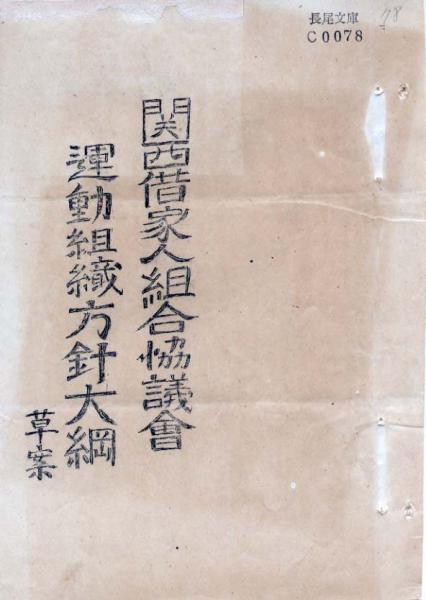 長尾文庫
C0078
78
関西借家人組合協議會
運動組織方針大綱
草案